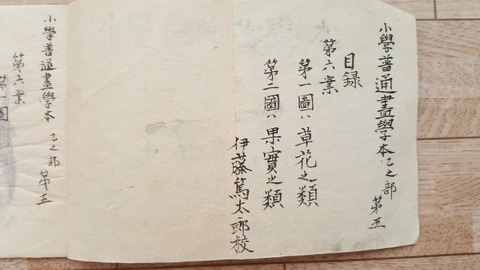 小學普通畫學本乙之部 第五
目録
第六業
第一圖ハ草花之類
第二圖ハ果實之類
伊藤篤太郎校
小學普通畫學本 乙之部 第五
第六業
第一圖